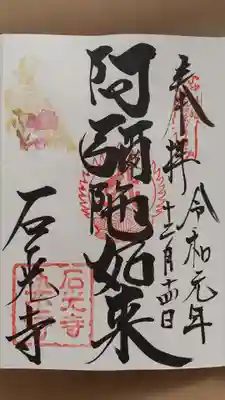 奉拝
令和元年
十二月十四日
阿弥陀如来
石光寺